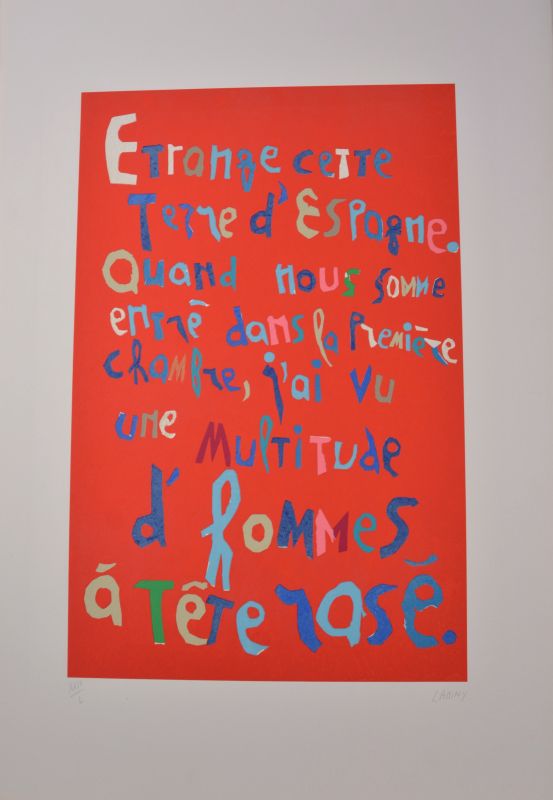 Etrange cette
Terre d'Espagne.
Quand nous somme
entrē dans la Première
chambre, j'ai vu
une Multitude
d'hommes
á Tête rasĕ.